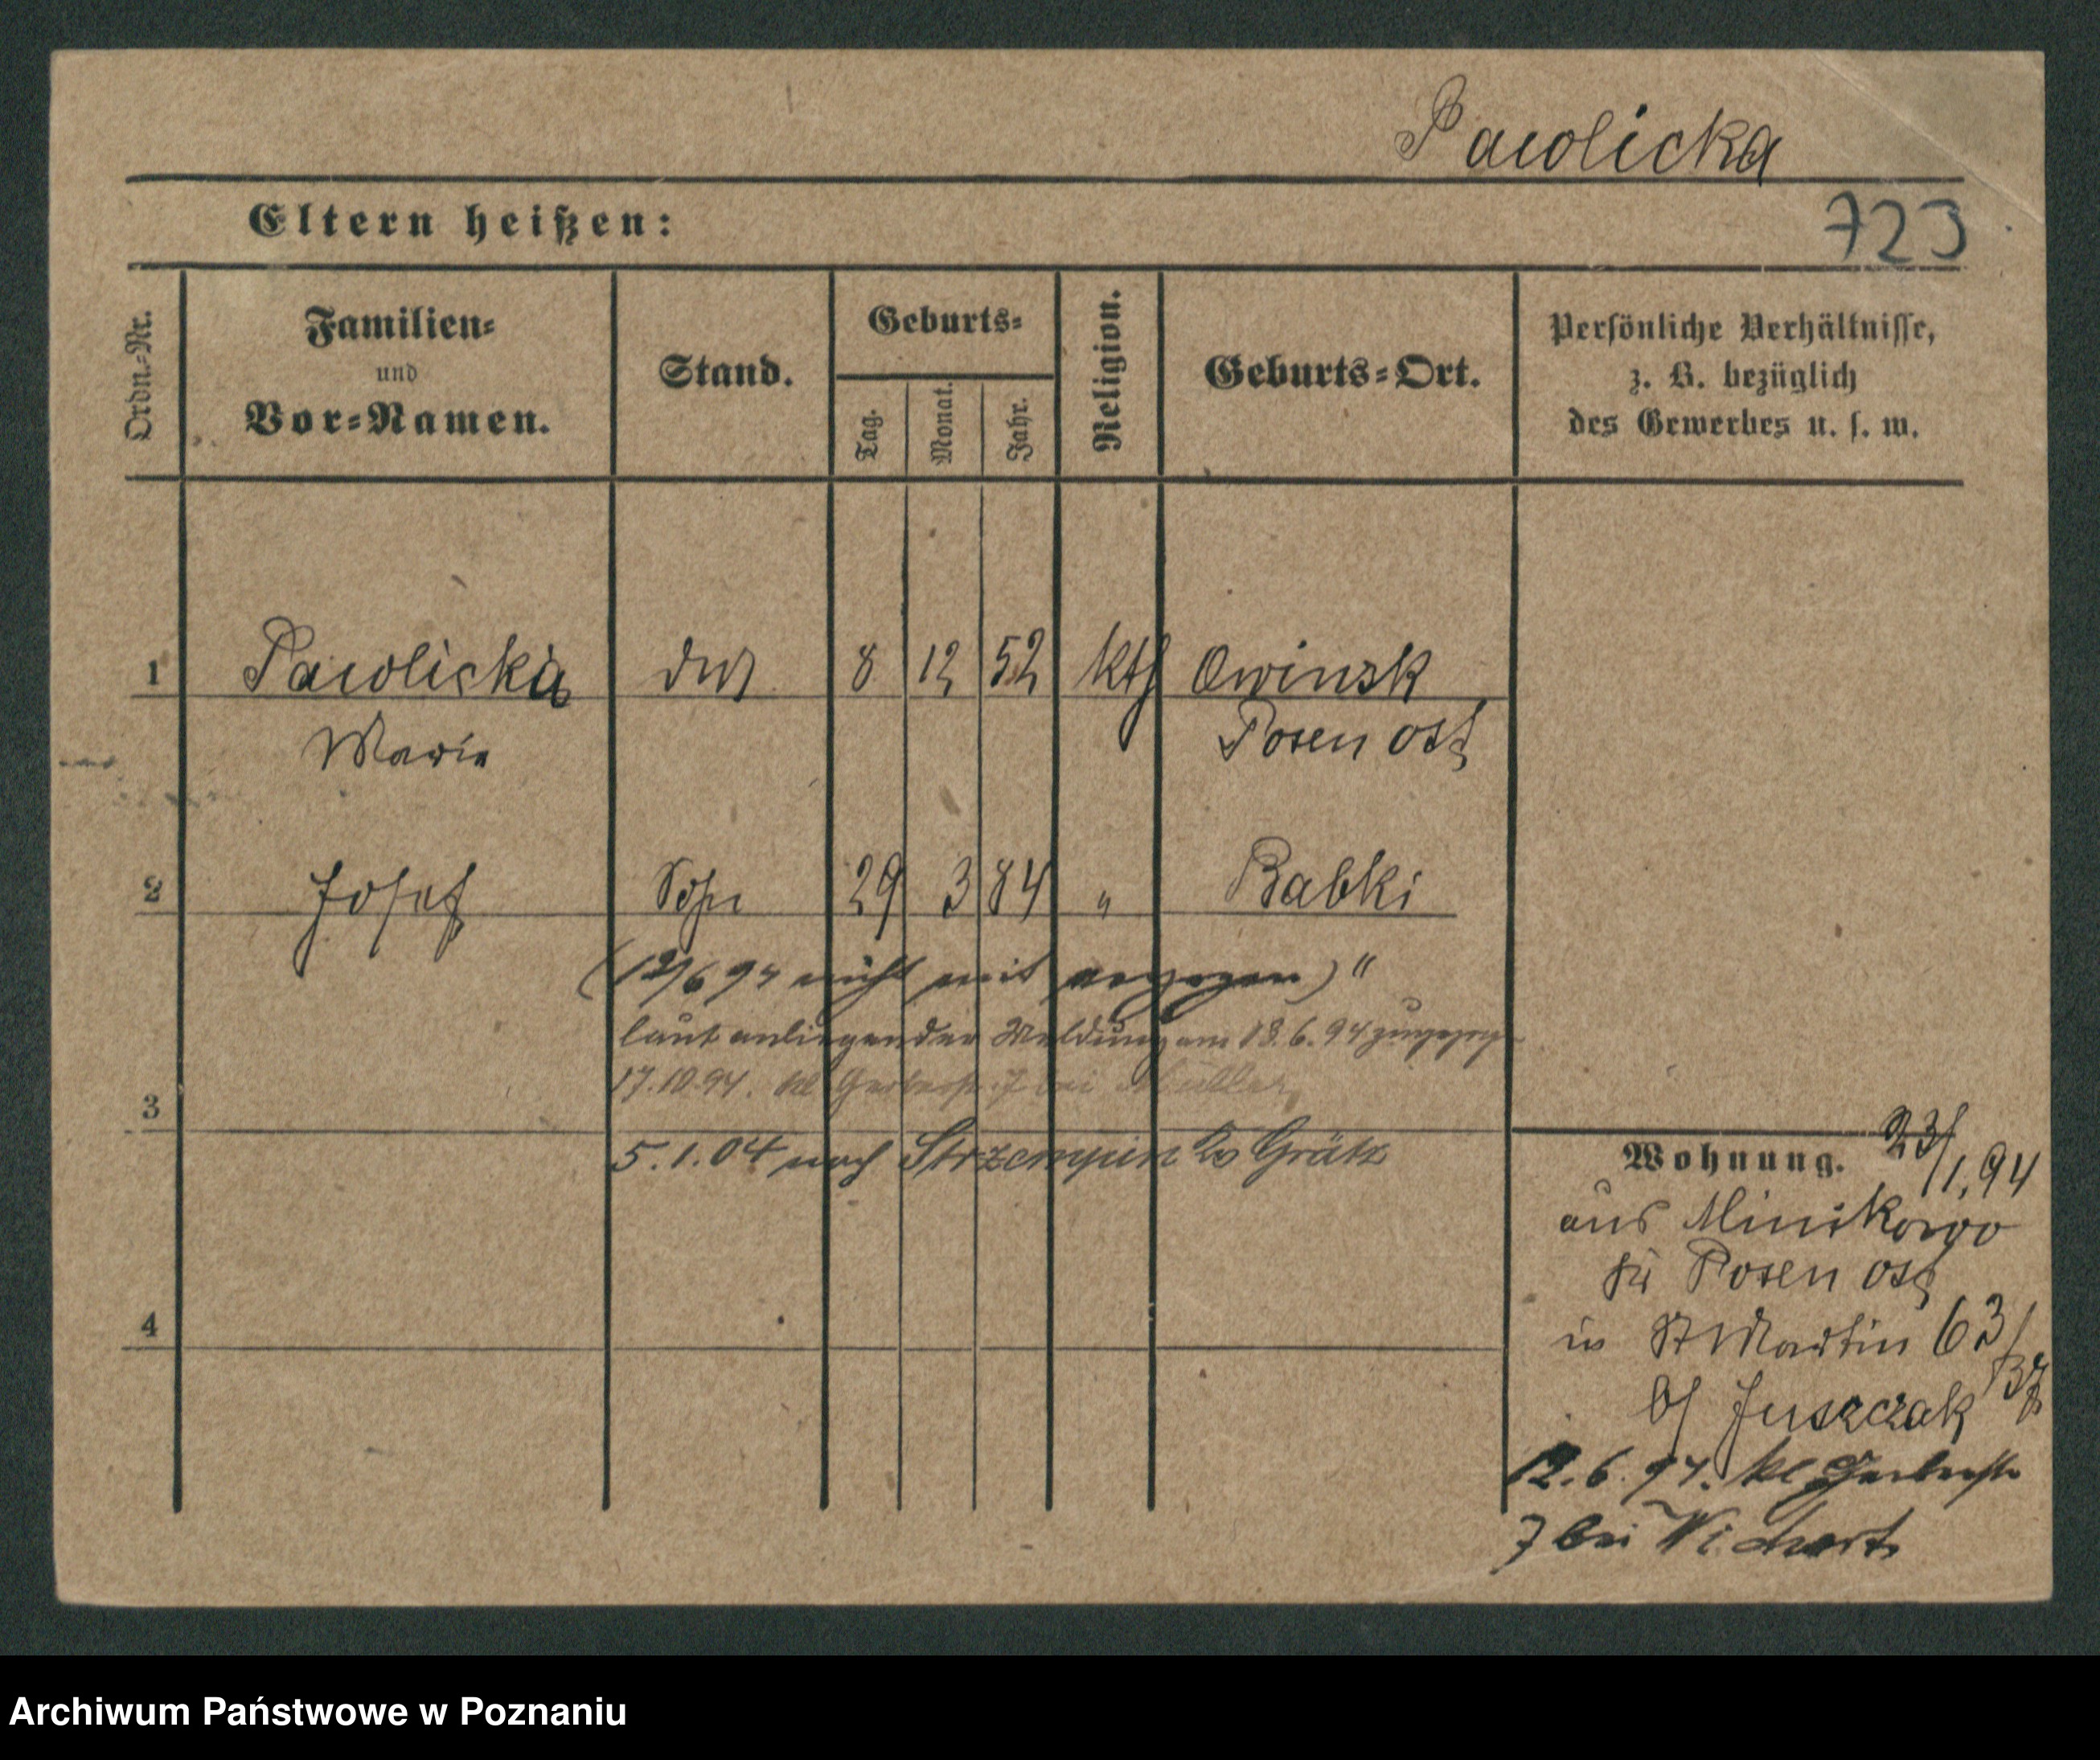 Pawlicka
Eltern heißen:
723
Ordn.-Nr.
Familien- und Vor-Namen.
Stand.
Geburts-
Tag.
Monat.
Jahr.
Religion.
Geburts-Ort.
Persönliche Verhältnisse,
z. B. bezüglich
des Gewerbes u. s. w.
1 Pawlicka 8 12 52 kth Owinsk
Marie Posen ost
2 Josef Sohn 29 3 84 " Babki
(12/6 94 nicht mit verzogen) "
laut anliegender Meldung am 18.6.94 zugezogen
17.10.94. kl Gerberstr. 7 bei Müller
3
5.1.04 nach Strzempin Kr Grätz
4
Wohnung. 23/1.94
aus Minikowo
Posen ost
in St Martin 63/
bei Juszczak
12.6.94. kl Gerberstr
7 bei Wichert
Archiwum Państwowe w Poznaniu